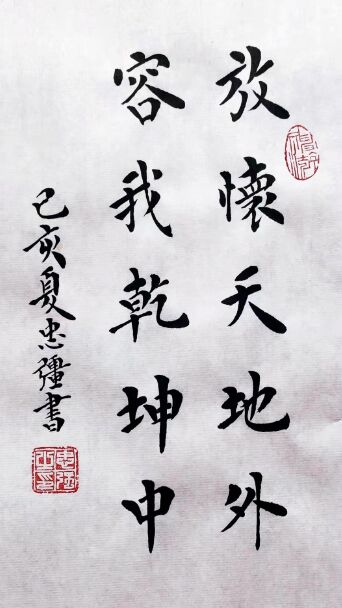 放懷天地外
容我乾坤中
己亥夏忠彊書